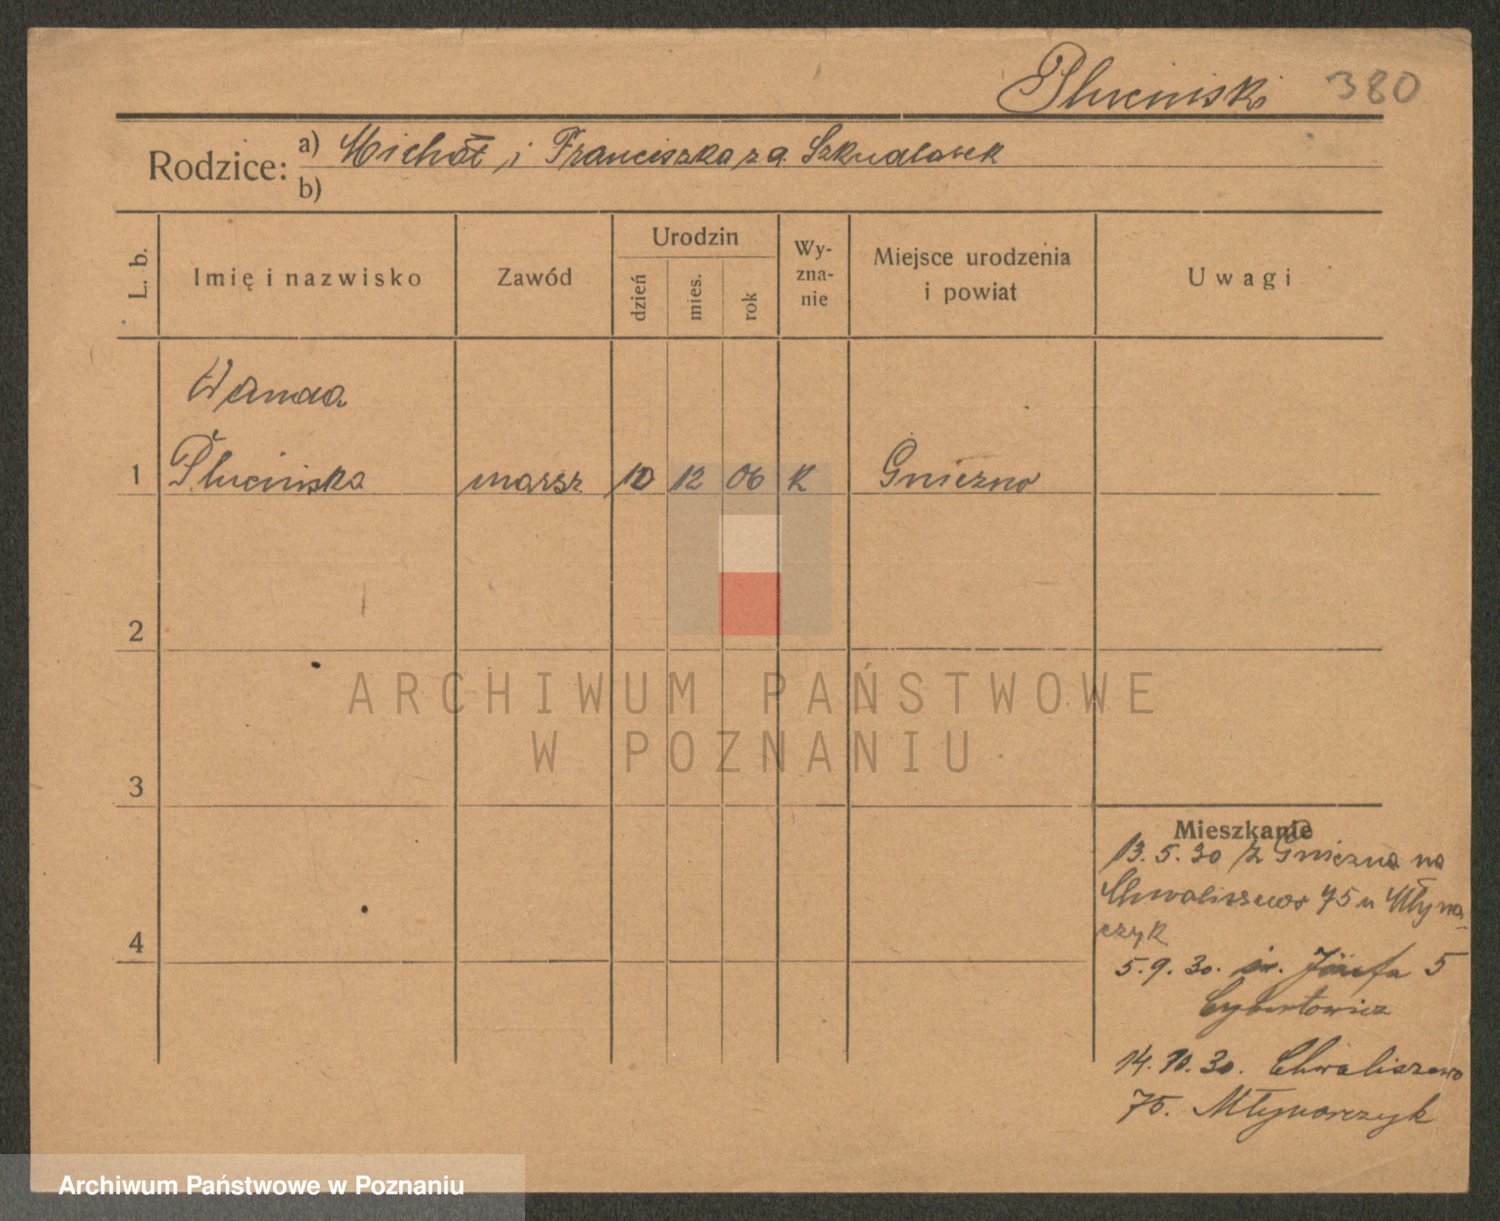 Pluciński 380
Rodzice: a) Michał i Franciszka z d. Szkudlarek
b)
L. b. Imię i nazwisko Zawód Urodzin dzień mies. rok Wy-zna-nie Miejsce urodzenia i powiat Uwagi
Wanda
1 Plucińska 10 12 06 K Gniezno
2
ARCHIWUM PAŃSTWOWE
W POZNANIU
3
Mieszkanie
13.5.30 z Gniezna na
Chwaliszewo 75 u Młynar
czyk
4
5.9.30. św. Józefa 5
14.10.30. Chwaliszewo
75. Młynarczyk
Archiwum Państwowe w Poznaniu